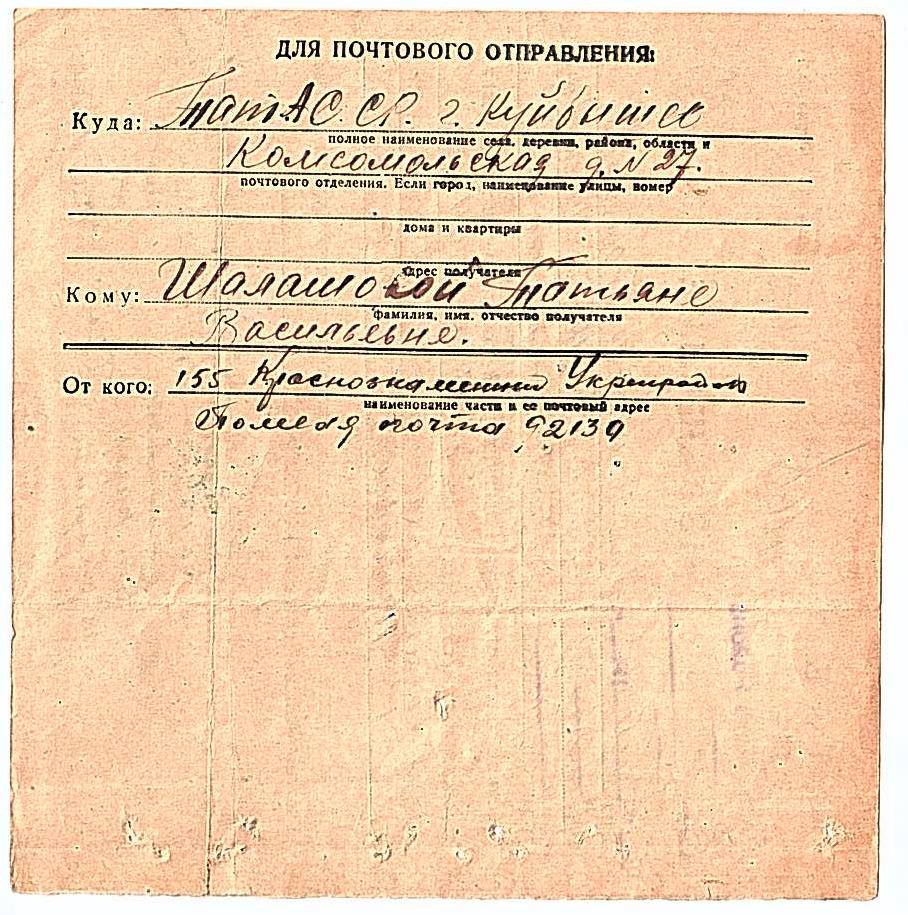 ДЛЯ ПОЧТОВОГО ОТПРАВЛЕНИЯ:
Куда: ТатАССР. г. Куйбышев
полное наименование села, деревни, района, области и
Комсомольская д. N 27.
почтового отделения. Если город, наименование улицы, номер
дома и квартиры
адрес получателя
Кому: Шалашовой Татьяне
фамилия, имя, отчество получателя
Васильевне.
От кого: 155 Краснознаменный Укрепрайон
наименование части и ее почтовый адрес
Полевая почта 92139